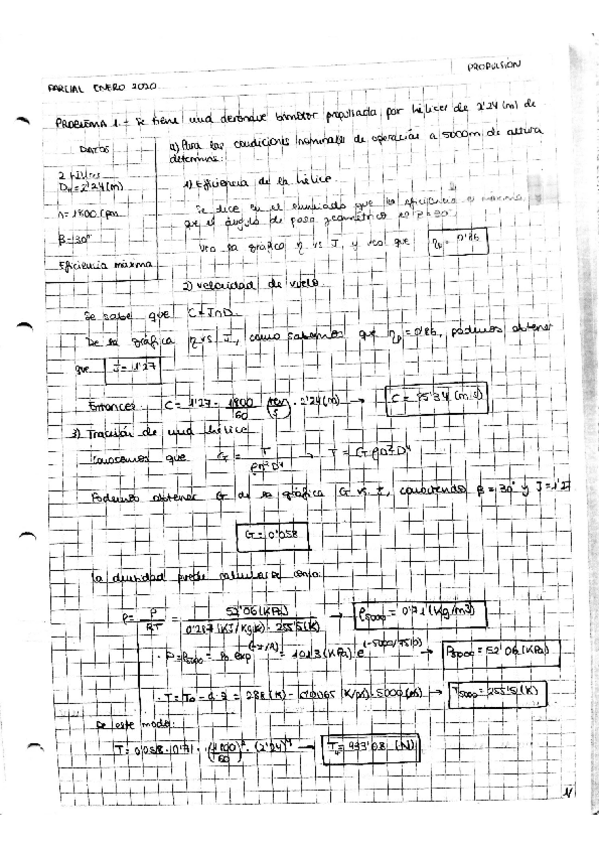 PROPULSIÓN
PARCIAL ENERO 2020
PROBLEMA 1.- Se tiene una aeronave bimotor propulsada por hélices de 2'24 (m) de
DATOS
a) Para las condiciones nominales de operación a 5000m de altura
determine:
2 hélices
D = 2'24 (m)
1) Eficiencia de la hélice.
n = 1800 rpm
Se dice en el enunciado que la eficiencia es máxima y
que el ángulo de paso geométrico es β = 30°
β = 30°
la gráfica η vs J, y veo que η = 0'86
Eficiencia máxima
2) Velocidad de vuelo.
Se sabe que C = JnD.
De la gráfica η vs J, como sabemos que η = 0'86, podemos obtener
que J = 1'27
Entonces C = 1'27 · 1800/60 · 2'24 (m) → C = 85'34 (m/s)
3) Tracción de una hélice
Conocemos que = T/ρn²D⁴ → T = ρn²D⁴
Podemos obtener de la gráfica vs J, conociendo β = 30° y J = 1'27
= 0'058
La densidad puede calcularse como:
ρ = P/RT = 52'06 (KPa) / 0'287 (KJ/KgK) · 255'5 (K) → ρ5000 = 0'71 (Kg/m3)
· P = P5000 = P0 exp = 101'3 (KPa) · e → P5000 = 52'06 (KPa)
· T = T0 - = 288 (K) - 0'0065 (K/m) · 5000 (m) → T5000 = 255'5 (K)
De este modo:
T = 0'058 · 0'71 · (1800/60)² · (2'24)⁴ → T = 933'08 (N)